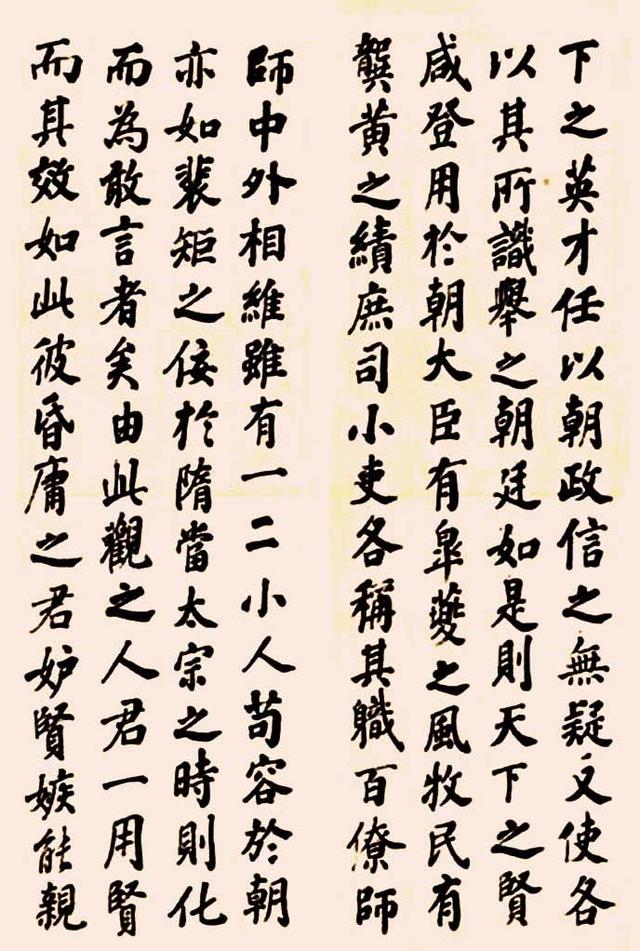 下之英才任以朝政信之無疑又使各
以其所識舉之朝廷如是則天下之賢
咸登用於朝大臣有皐夔之風牧民有
龔黄之績庶司小吏各稱其職百僚師
師中外相維雖有一二小人苟容於朝
亦如裴矩之佞於隋當太宗之時則化
而為敢言者矣由此觀之人君一用賢
而其效如此彼昏庸之君妒賢嫉能親